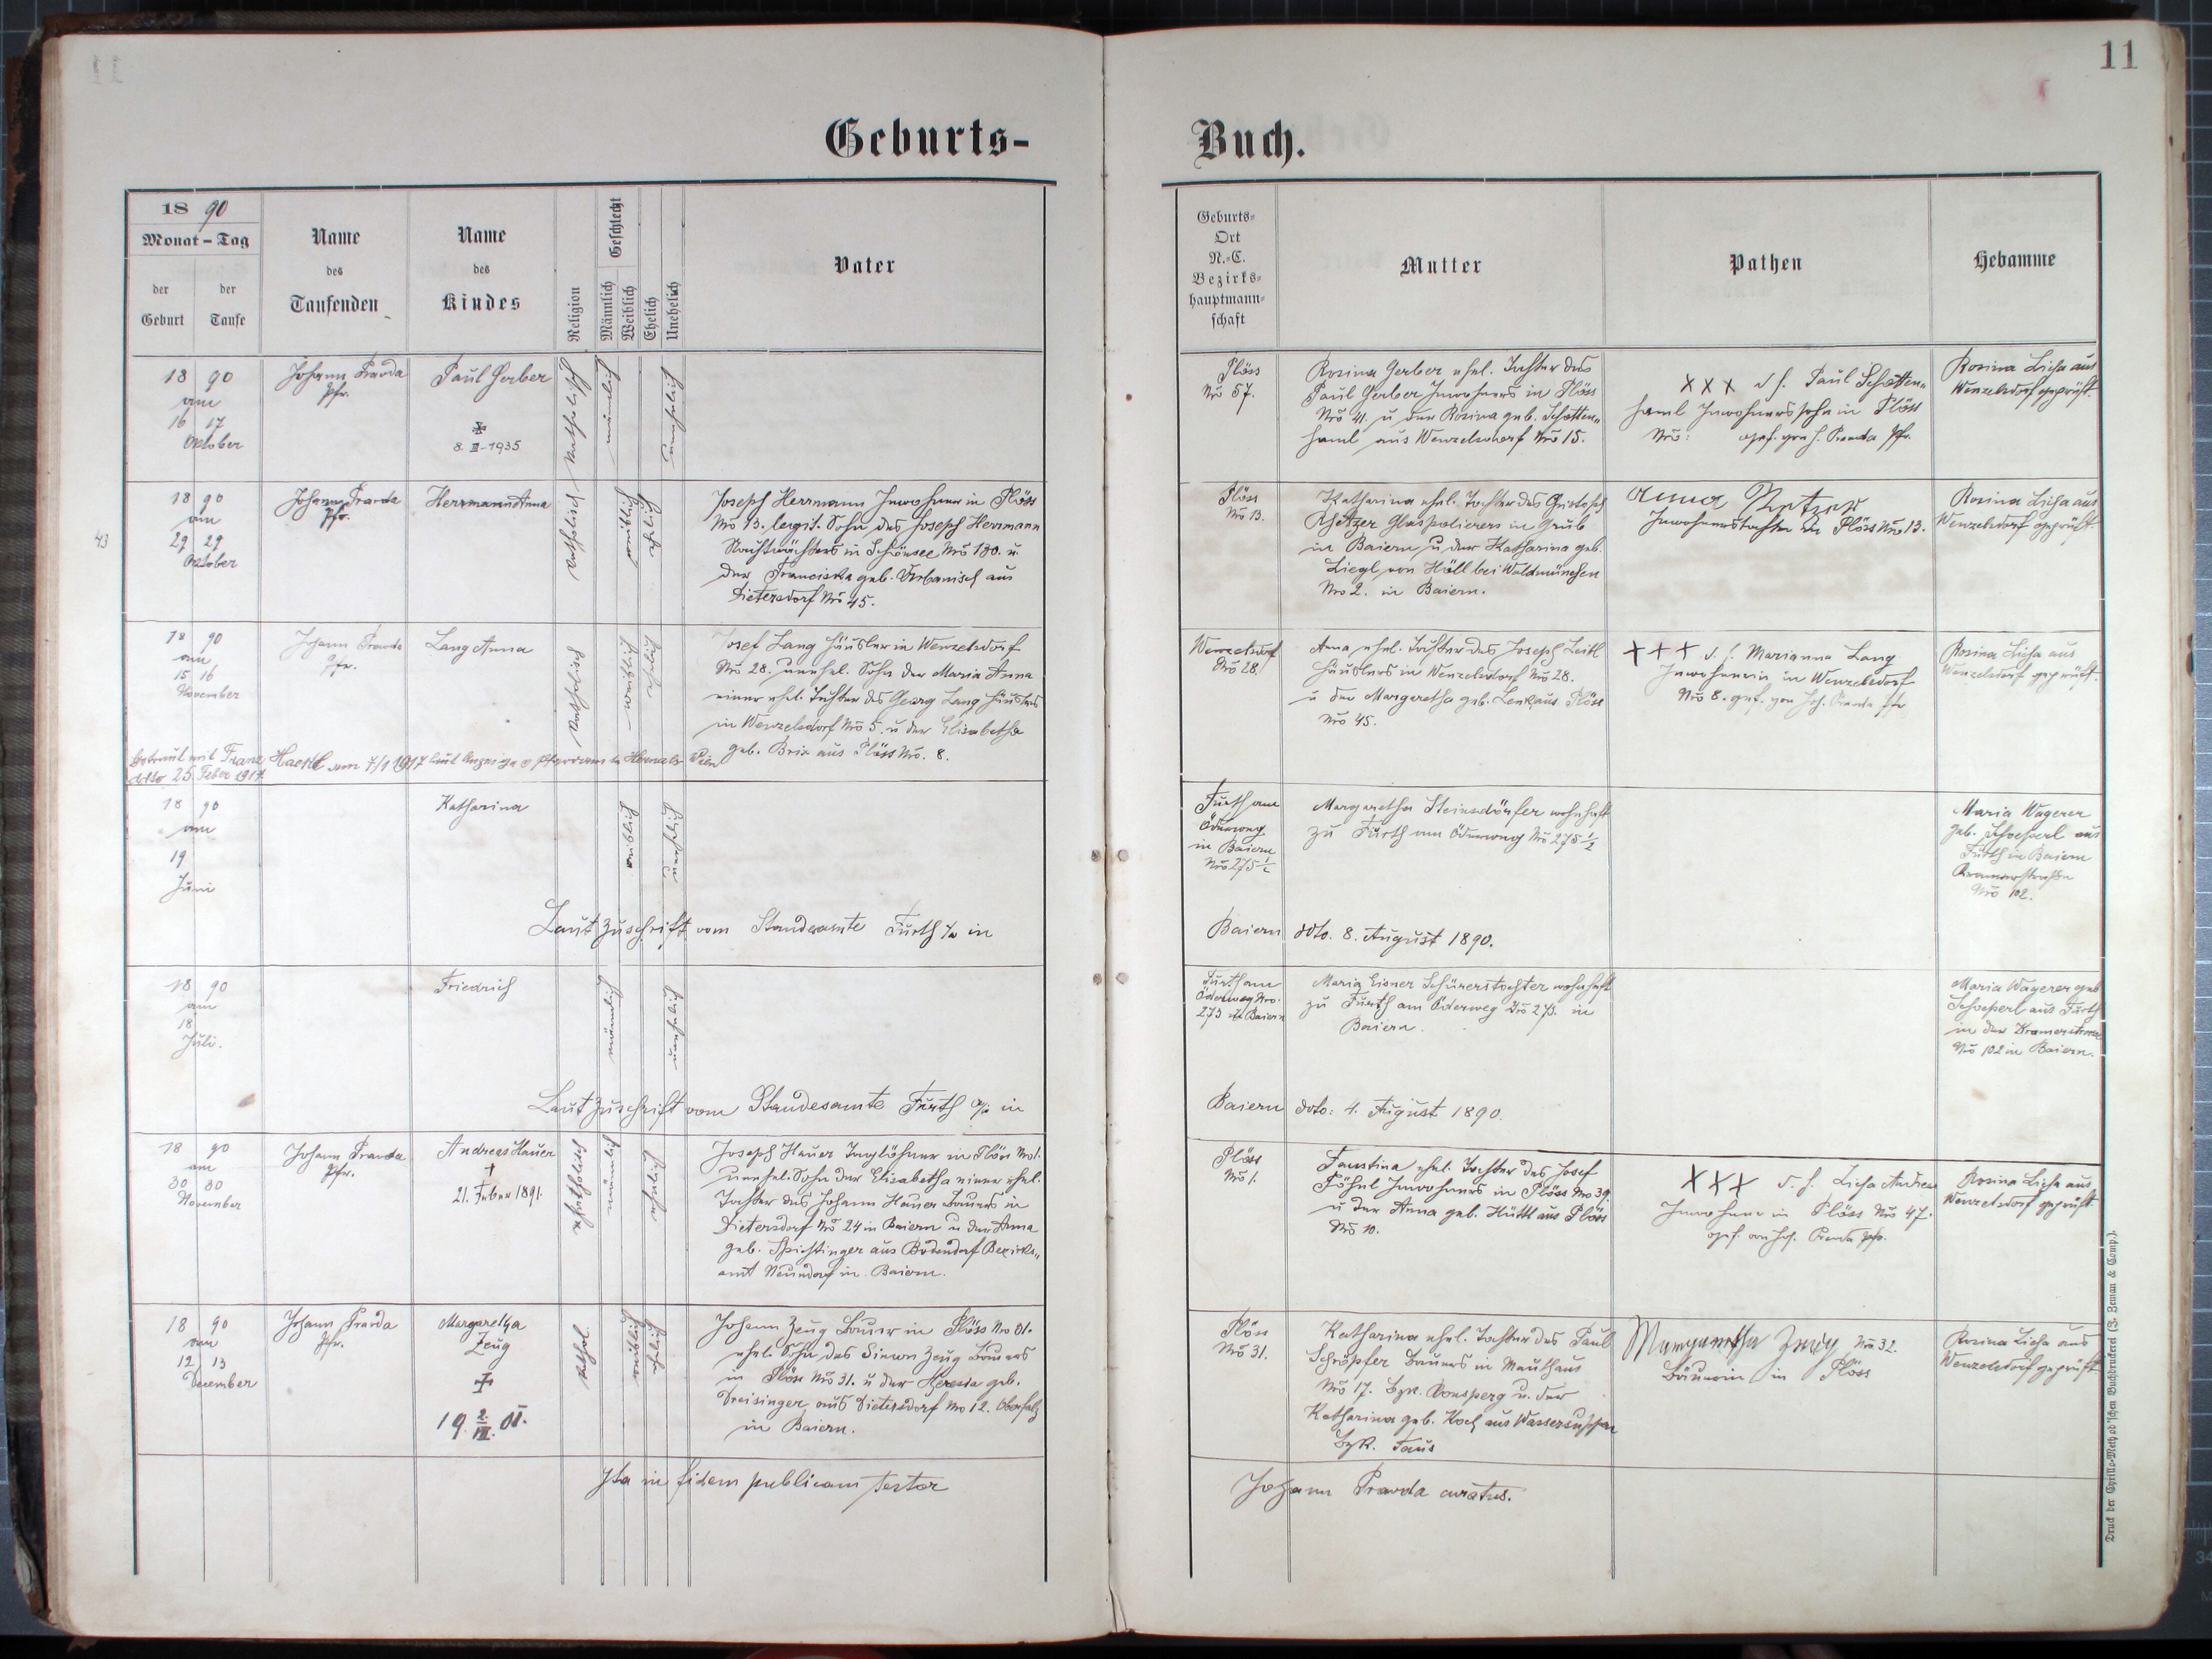 11
Geburts-
Buch.
18 90
Monat - Tag
der Geburt
der Taufe
Name des Taufenden
Name des Kindes
Religion
Geschlecht
Männlich
Weiblich
Ehelich
Unehelich
Vater
Geburts-
Ort
N.-C.
Bezirks-
hauptmann-
schaft
Mutter
Pathen
Hebamme
18 90
am
16 17
Oktober
Johann Pravda
Pfr.
Paul Gerber
8. III-1935
katholisch
männlich
unehelich
Plöss
Nro 57.
Rosina Gerber ehel. Tochter des
Paul Gerber Inwohners in Plöss
Nro 41. u der Rosina geb. Schatten-
haml aus Wenzelsdorf Nro 15.
XXX d. h. Paul Schatten-
haml Inwohnerssohn in Plöss
Nro: gef. von J. Pravda Pfr.
Rosina Licha aus
Wenzelsdorf geprüft.
43
18 90
am
29 29
Oktober
Johann Pravda
Pfr.
Herrmann Anna
katholisch
weiblich
ehelich
Joseph Herrmann Inwohner in Plöss
Nro 13. legit. Sohn des Joseph Herrmann
Nachtwächters in Schönsee Nro 130. u.
der Franciska geb. Urbanisch aus
Dietersdorf Nro 45.
Plöss
Nro 13.
Katharina ehel. Tochter des Christoph
Glaspolierers in Grub
in Baiern u der Katharina geb.
Liegl von Höll bei Waldmünchen
Nro 2. in Baiern.
Anna
Inwohnerstochter in Plöss Nro 13.
Rosina Licha aus
Wenzelsdorf geprüft.
18 90
am
15 16
November
Johann Pravda
Pfr.
Lang Anna
katholisch
weiblich
ehelich
Josef Lang Häusler in Wenzelsdorf
Nro 28. unehel. Sohn der Maria Anna
einer ehel. Tochter des Georg Lang Häuslers
in Wenzelsdorf Nro 5. u der Elisabetha
geb. Brix aus Plöss Nro. 8.
Getraut mit Franz Haertl am 7/1 1917 laut Anzeige d Pfarramtes Hernals Wien
ddto 25 Feber 1917
Wenzelsdorf
Nro 28.
Anna ehel. Tochter des Joseph Leitl
Häuslers in Wenzelsdorf Nro 28.
u der Margaretha geb. Lenk aus Plöss
Nro 45.
+++ d. h. Marianna Lang
Inwohnerin in Wenzelsdorf
Nro 8. gef. von Joh. Pravda Pfr
Rosina Licha aus
Wenzelsdorf geprüft.
18 90
am
19
Juni
Katharina
weiblich
unehelich
Furth am
in Baiern
Nro 275 1/2
Margaretha Steinsdörfer wohnhaft
zu Furth am Nro 275 1/2
Maria Wagerer
geb. aus
Furth in Baiern
Kramerstraße
Nro 102.
Laut Zuschrift vom Standesamte Furth i/w in
Baiern ddto. 8. August 1890.
18 90
am
18
Juli.
Friedrich
männlich
unehelich
Furth am
Öderweg Nro.
273 in Baiern
Maria Eisner wohnhaft
zu Furth am Öderweg Nro 273. in
Baiern.
Maria Wagerer geb
aus Furth
in der Kramerstrasse
Nro 102 in Baiern.
Laut Zuschrift vom Standesamte Furth in
Baiern ddto: 4. August 1890.
18 90
am
30 30
November
Johann Pravda
Pfr.
Andreas Hauer
†
21. Feber 1891.
katholisch
männlich
ehelich
Joseph Hauer Taglöhner in Plöss Nro 1.
unehel. Sohn der Elisabetha einer ehel.
Tochter des Johann Hauer Bauers in
Dietersdorf Nro 24 in Baiern u der Anna
geb. Spichtinger aus Bezirks-
amt in Baiern.
Plöss
Nro 1.
Faustina ehel. Tochter des Josef
Inwohners in Plöss Nro 39.
u der Anna geb. Hüttl aus Plöss
Nro 10.
XXX d. h. Licha Andreas
Inwohner in Plöss Nro 47.
gef. von Joh. Pravda Pfr.
Rosina Licha aus
Wenzelsdorf geprüft.
18 90
am
12 13
December
Johann Pravda
Pfr.
Margaretha
Zeug
19 2. III. 01.
kathol.
weiblich
ehelich
Johann Zeug Bauer in Plöss Nro 31.
ehel. Sohn des Simon Zeug Bauers
in Plöss Nro 31. u der Theresia geb.
Dreisinger aus Dietersdorf Nro 12. Oberpfalz
in Baiern.
Plöss
Nro 31.
Katharina ehel. Tochter des Paul
Schröpfer Bauers in Mauthaus
Nro 17. Bzk. Ronsperg u. der
Katharina geb. Koch aus Wassersuppen
Bzk. Taus
Margaretha Zeug Nro 32.
Bäuerin in Plöss
Rosina Licha aus
Wenzelsdorf geprüft
Ita in fidem publicam testor
Johann Pravda curatus.
Druck der Cyrillo-Method'schen Buchdruckerei (J. Zeman & Comp.).